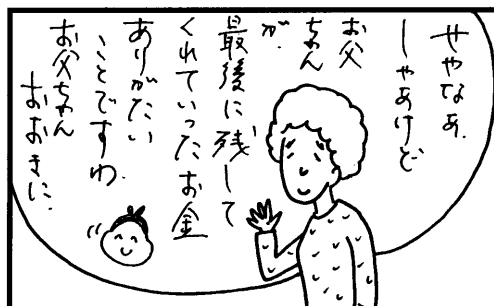 せやなぁ.
しゃあけど
お父
ちゃん
が.
最後に残して
くれていったお金
ありがたい
ことですわ.
お父ちゃん
おおきに.